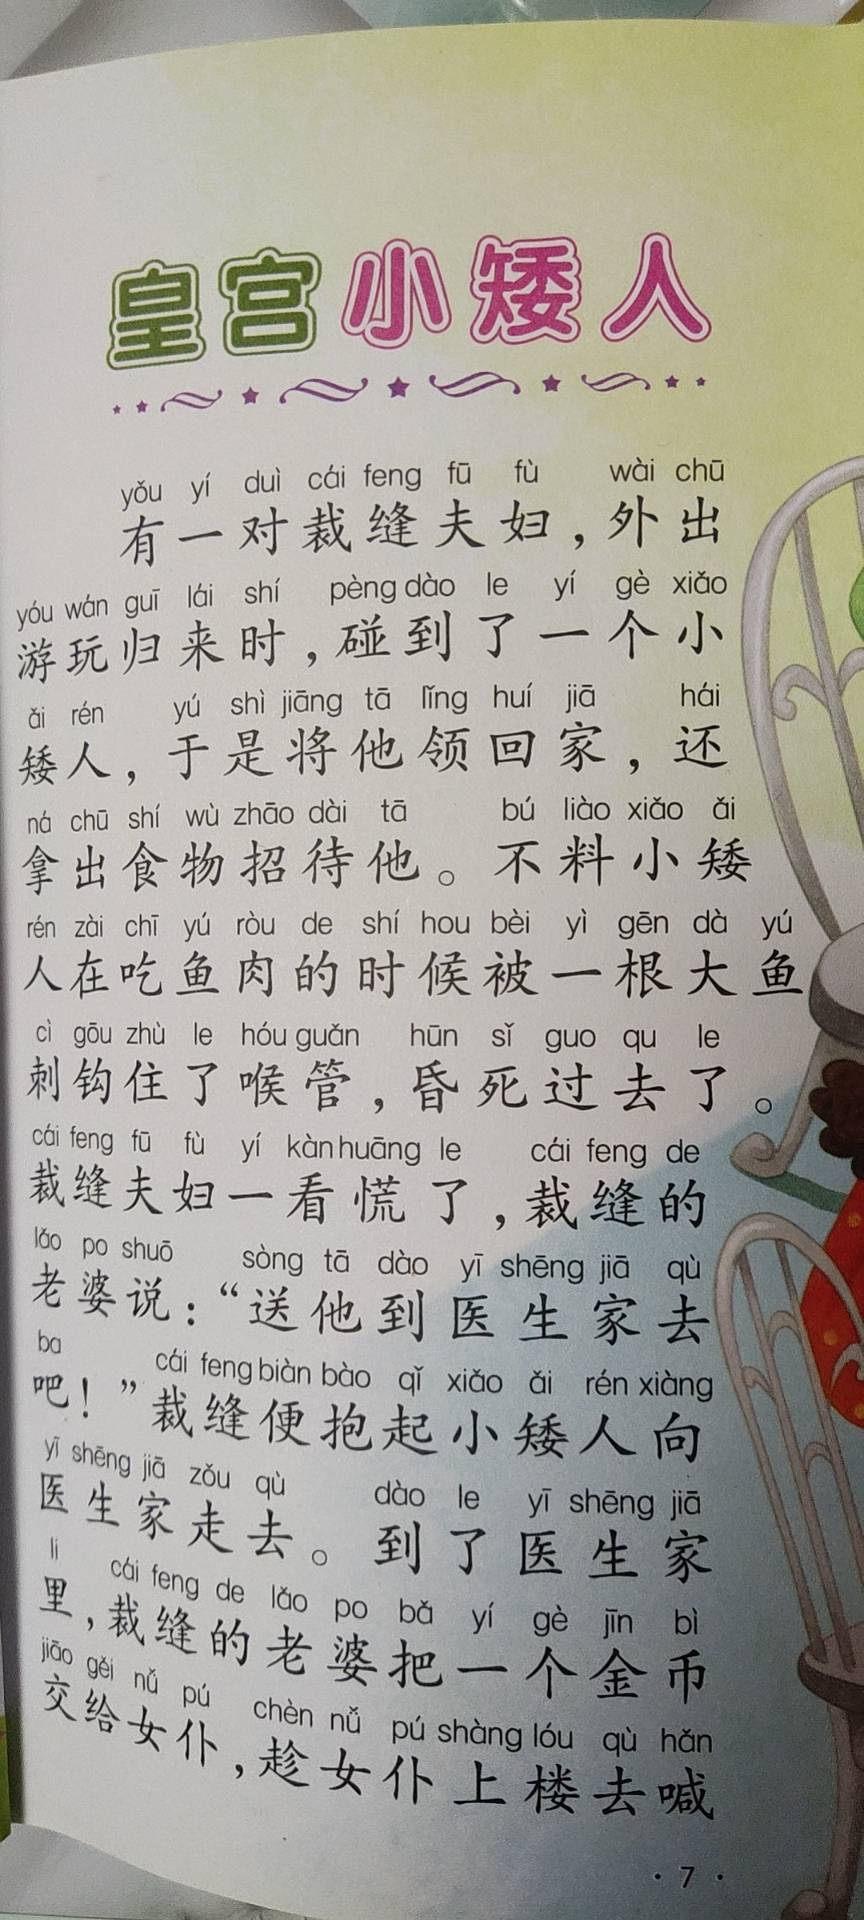 皇宫小矮人
yǒu yí duì cái feng fū fù wài chū
有一对裁缝夫妇，外出
yóu wán guī lái shí pèng dào le yí gè xiǎo
游玩归来时，碰到了一个小
ǎi rén yú shì jiāng tā lǐng huí jiā hái
矮人，于是将他领回家，还
ná chū shí wù zhāo dài tā bú liào xiǎo ǎi
拿出食物招待他。不料小矮
rén zài chī yú ròu de shí hou bèi yì gēn dà yú
人在吃鱼肉的时候被一根大鱼
cì gōu zhù le hóu guǎn hūn sǐ guo qu le
刺钩住了喉管，昏死过去了。
cái feng fū fù yí kàn huāng le cái feng de
裁缝夫妇一看慌了，裁缝的
lǎo po shuō sòng tā dào yī shēng jiā qù
老婆说：“送他到医生家去
ba cái feng biàn bào qǐ xiǎo ǎi rén xiàng
吧！”裁缝便抱起小矮人向
yī shēng jiā zǒu qù dào le yī shēng jiā
医生家走去。到了医生家
li cái feng de lǎo po bǎ yí gè jīn bì
里，裁缝的老婆把一个金币
jiāo gěi nǚ pú chèn nǚ pú shàng lóu qù hǎn
交给女仆，趁女仆上楼去喊
·7·